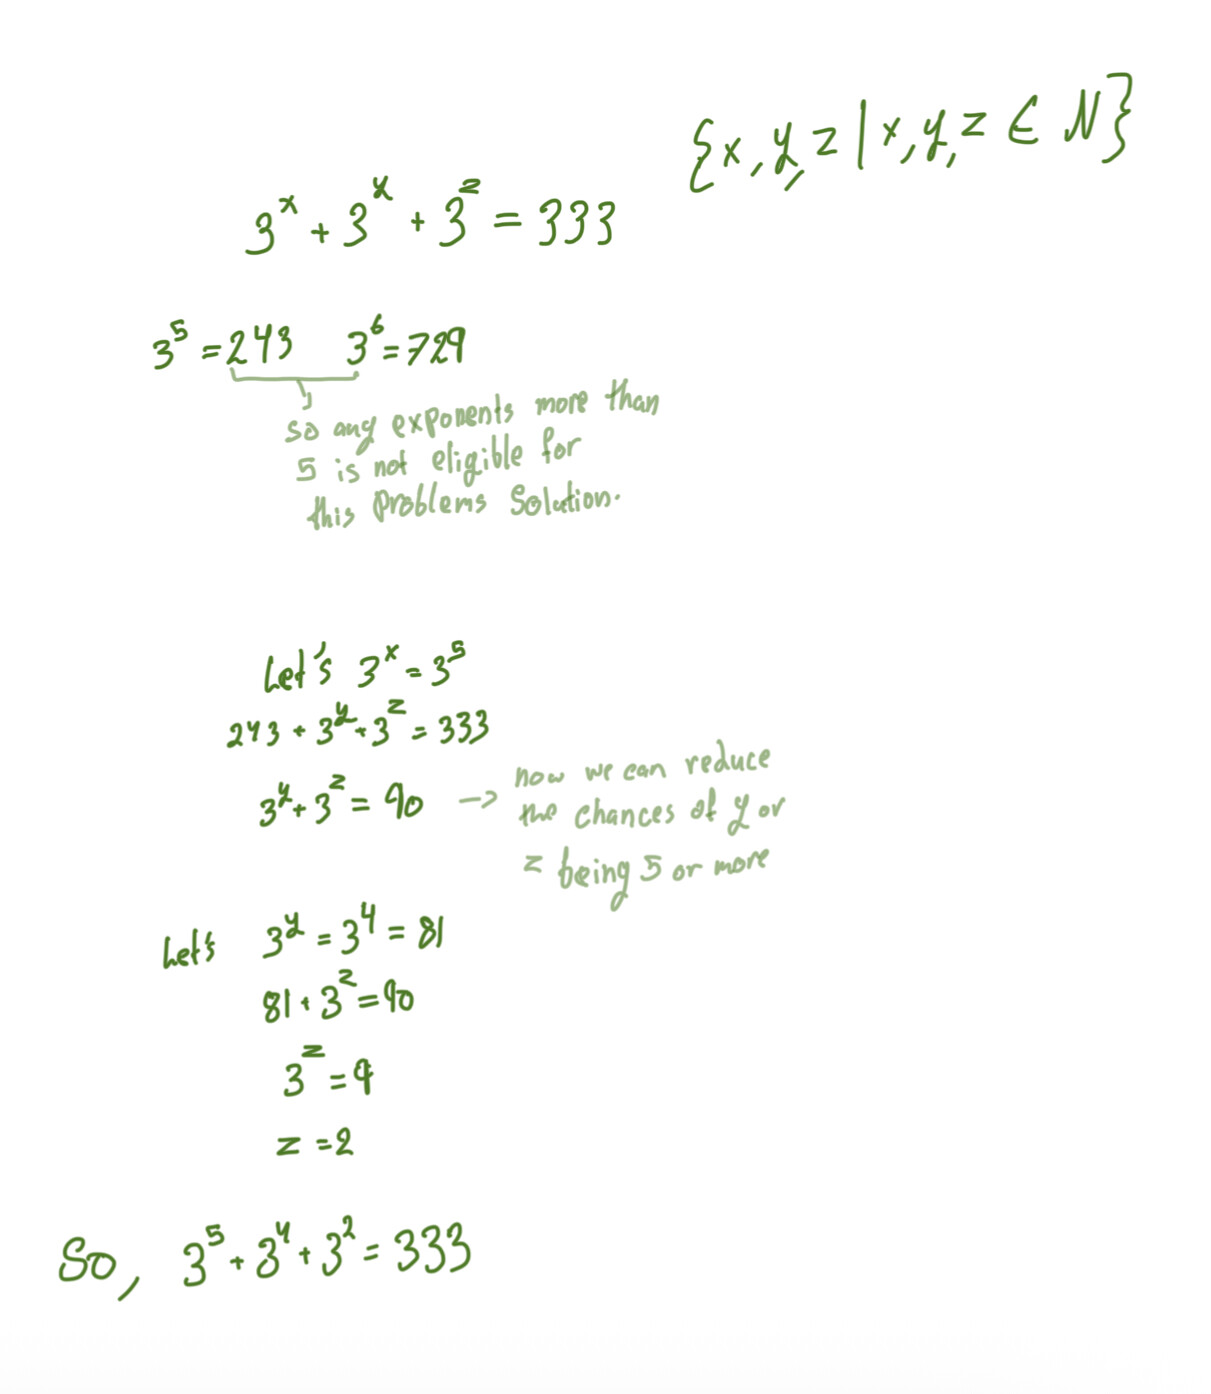 {x, y, z | x, y, z ∈ N}
3^x + 3^y + 3^z = 333
3^5 = 243 3^6 = 729
so any exponents more than
5 is not eligible for
this problems solution.
Let's 3^x = 3^5
243 + 3^y + 3^z = 333
3^y + 3^z = 90 -> now we can reduce
the chances of y or
z being 5 or more
Let's 3^y = 3^4 = 81
81 + 3^z = 90
3^z = 9
z = 2
So, 3^5 + 3^4 + 3^2 = 333